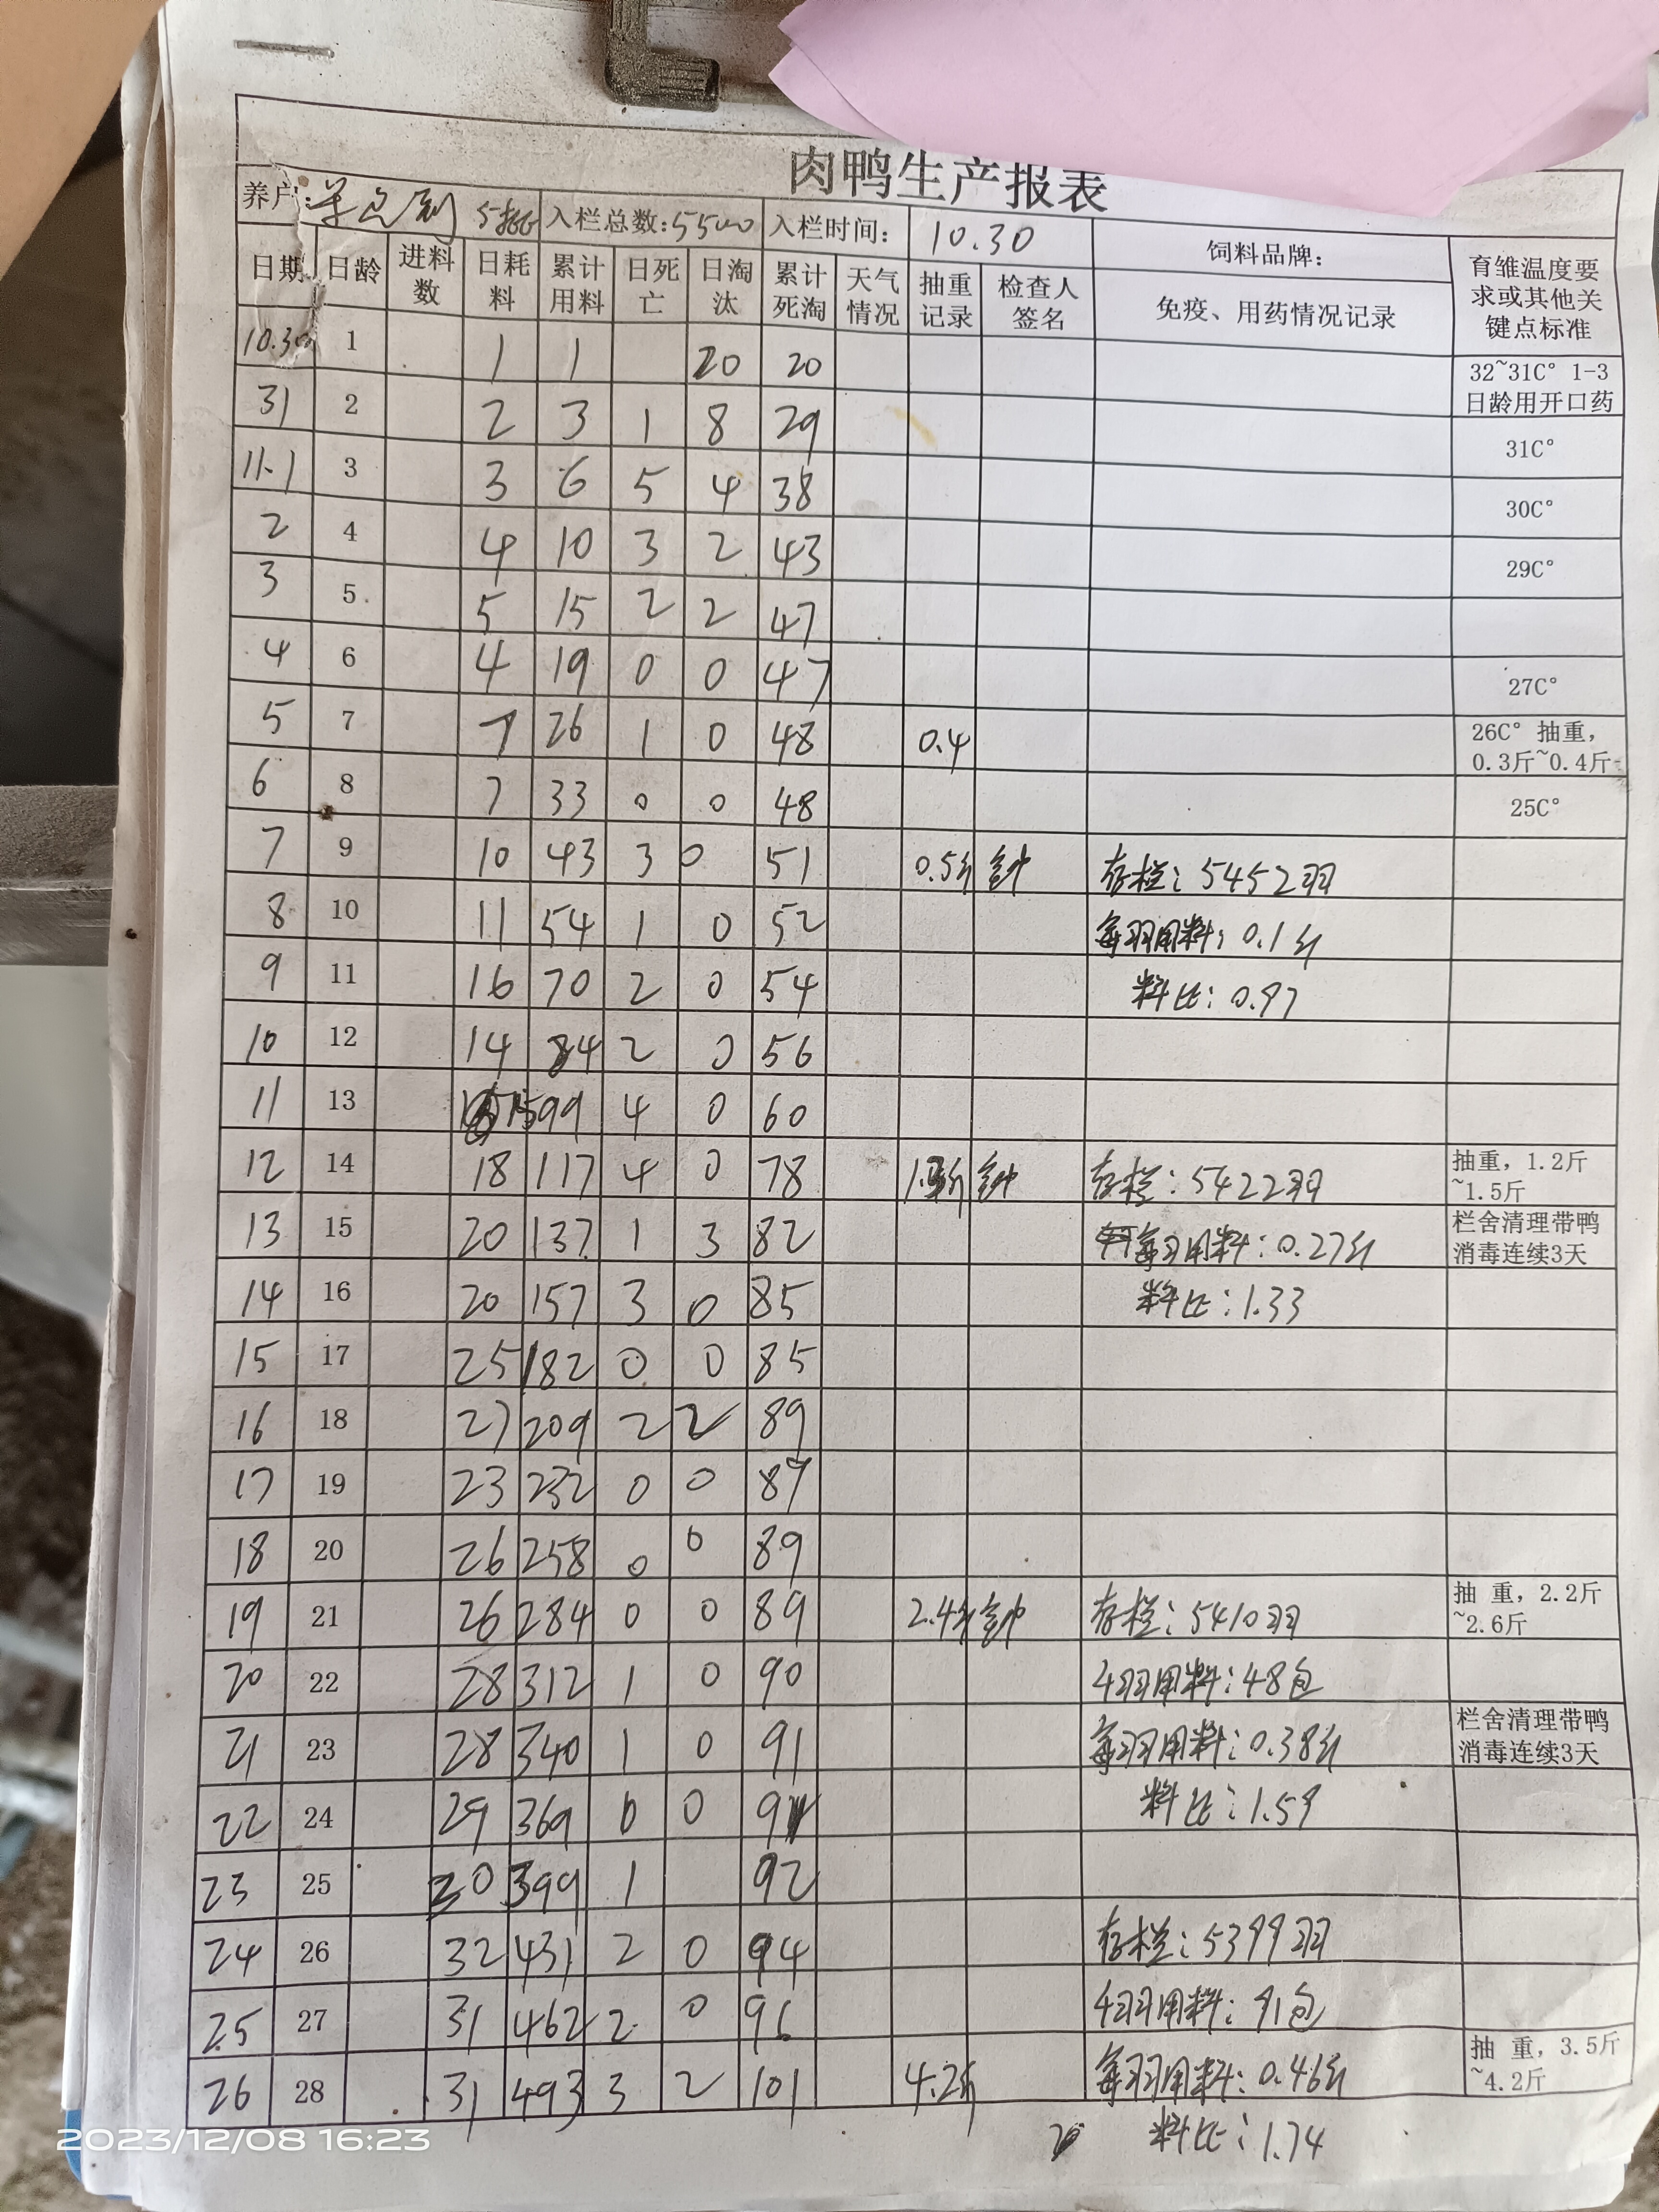 肉鸭生产报表
养户: 5批 入栏总数:5500 入栏时间: 10.30 饲料品牌:
日期 日龄 进料数 日耗料 累计用料 日死亡 日淘汰 累计死淘 天气情况 抽重记录 检查人签名 免疫、用药情况记录 育雏温度要求或其他关键点标准
10.30 1 1 1 20 20 32~31C° 1-3日龄用开口药
31 2 2 3 1 8 29 31C°
11.1 3 3 6 5 4 38 30C°
2 4 4 10 3 2 43 29C°
3 5 5 15 2 2 47
4 6 4 19 0 0 47 27C°
5 7 7 26 1 0 48 0.4 26C° 抽重,0.3斤~0.4斤
6 8 7 33 0 0 48 25C°
7 9 10 43 3 0 51 0.5斤 存栏:5452羽
8 10 11 54 1 0 52 每羽用料:0.1斤
9 11 16 70 2 0 54 料比:0.97
10 12 14 84 2 0 56
11 13 15 99 4 0 60
12 14 18 117 4 0 78 存栏:5422羽 抽重,1.2斤~1.5斤
13 15 20 137 1 3 82 每羽用料:0.27斤 栏舍清理带鸭消毒连续3天
14 16 20 157 3 0 85 料比:1.33
15 17 25 182 0 0 85
16 18 27 209 2 2 89
17 19 23 232 0 0 89
18 20 26 258 0 0 89
19 21 26 284 0 0 89 2.4斤 存栏:5410羽 抽 重,2.2斤~2.6斤
20 22 28 312 1 0 90 4羽用料:48包
21 23 28 340 1 0 91 每羽用料:0.38斤 栏舍清理带鸭消毒连续3天
22 24 29 369 0 0 91 料比:1.59
23 25 30 399 1 92
24 26 32 431 2 0 94 存栏:5399羽
25 27 31 462 2 0 96 4羽用料:91包
26 28 31 493 3 2 101 4.2斤 每羽用料:0.46斤 抽 重,3.5斤~4.2斤
料比:1.74
2023/12/08 16:23